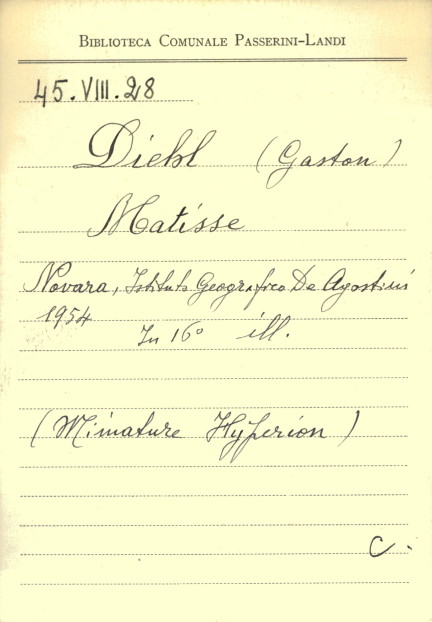 BIBLIOTECA COMUNALE PASSERINI-LANDI
45.VIII.28
Diehl (Gaston)
Matisse
Novara, Istituto Geografico De Agostini
1954
In 16° ill.
(Miniature Hyperion)
C.